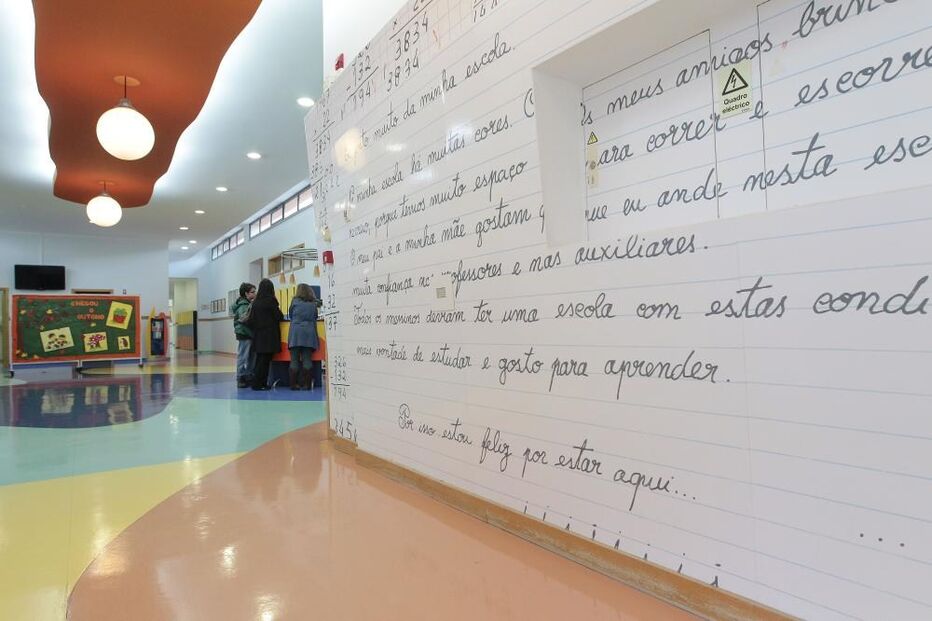 3834
132
794
3834
144
gosto muito da minha escola.
minha escola há muitas cores.
meus amigos brinc
para correr e escorre
porque temos muito espaço
que eu ande nesta esc
O meu pai e a minha mãe gostam
muita confiança
ofessores e nas auxiliares.
Todos os meninos deviam ter uma escola com estas condi
mais vontade de estudar e gosto para aprender.
Por isso estou feliz por estar aqui...
...
326
-132
794
3454
Quadro
eléctrico
CHEGOU
O
OUTONO